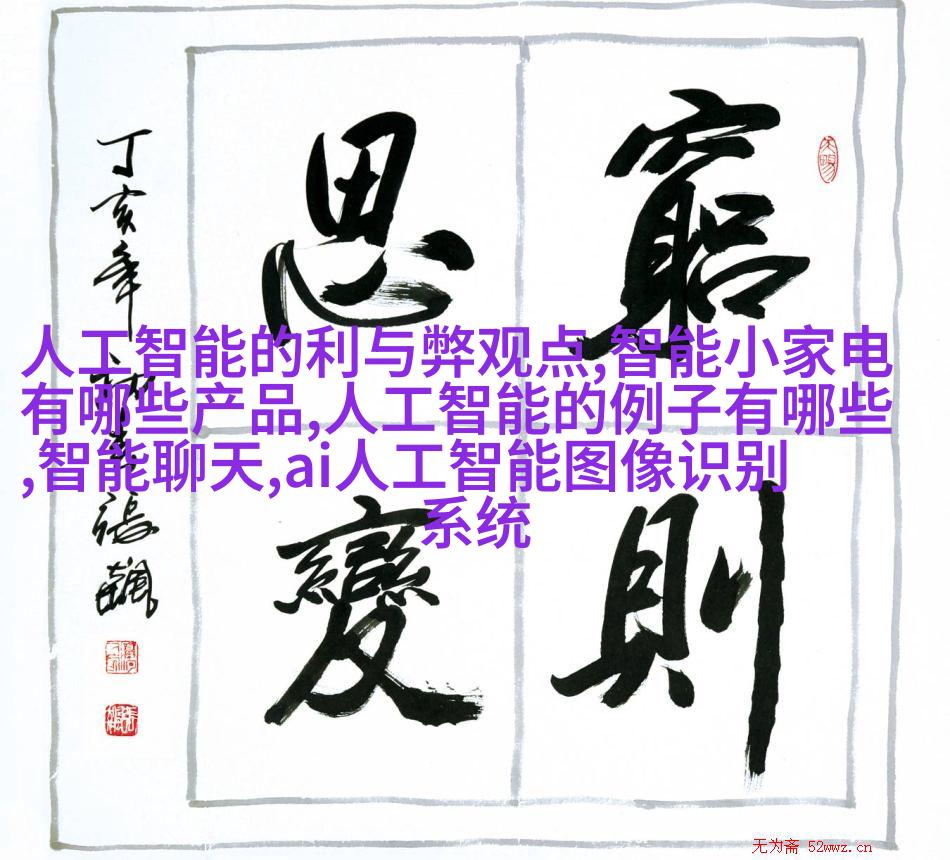 窮則
思變
丁亥年
張飆
人工智能的利与弊观点,智能小家电
有哪些产品,人工智能的例子有哪些
,智能聊天,ai人工智能图像识别
系统
无为斋 52wwz.cn